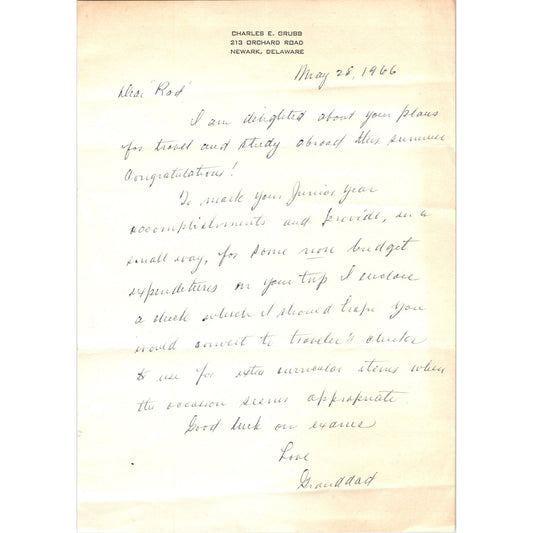 CHARLES E. GRUBB
213 ORCHARD ROAD
NEWARK, DELAWARE
May 28, 1966
Dear "Rod"
I am delighted about your plans
for travel and study abroad this summer
Congratulations!
To mark your Junior Year
accomplishments and provide, in a
small way, for some non budget
expenditures on your trip I enclose
a check which I should hope you
would convert to traveler's checks
to use for extra curricular items when
the occasion seems appropriate.
Good luck on exams
Love
Granddad